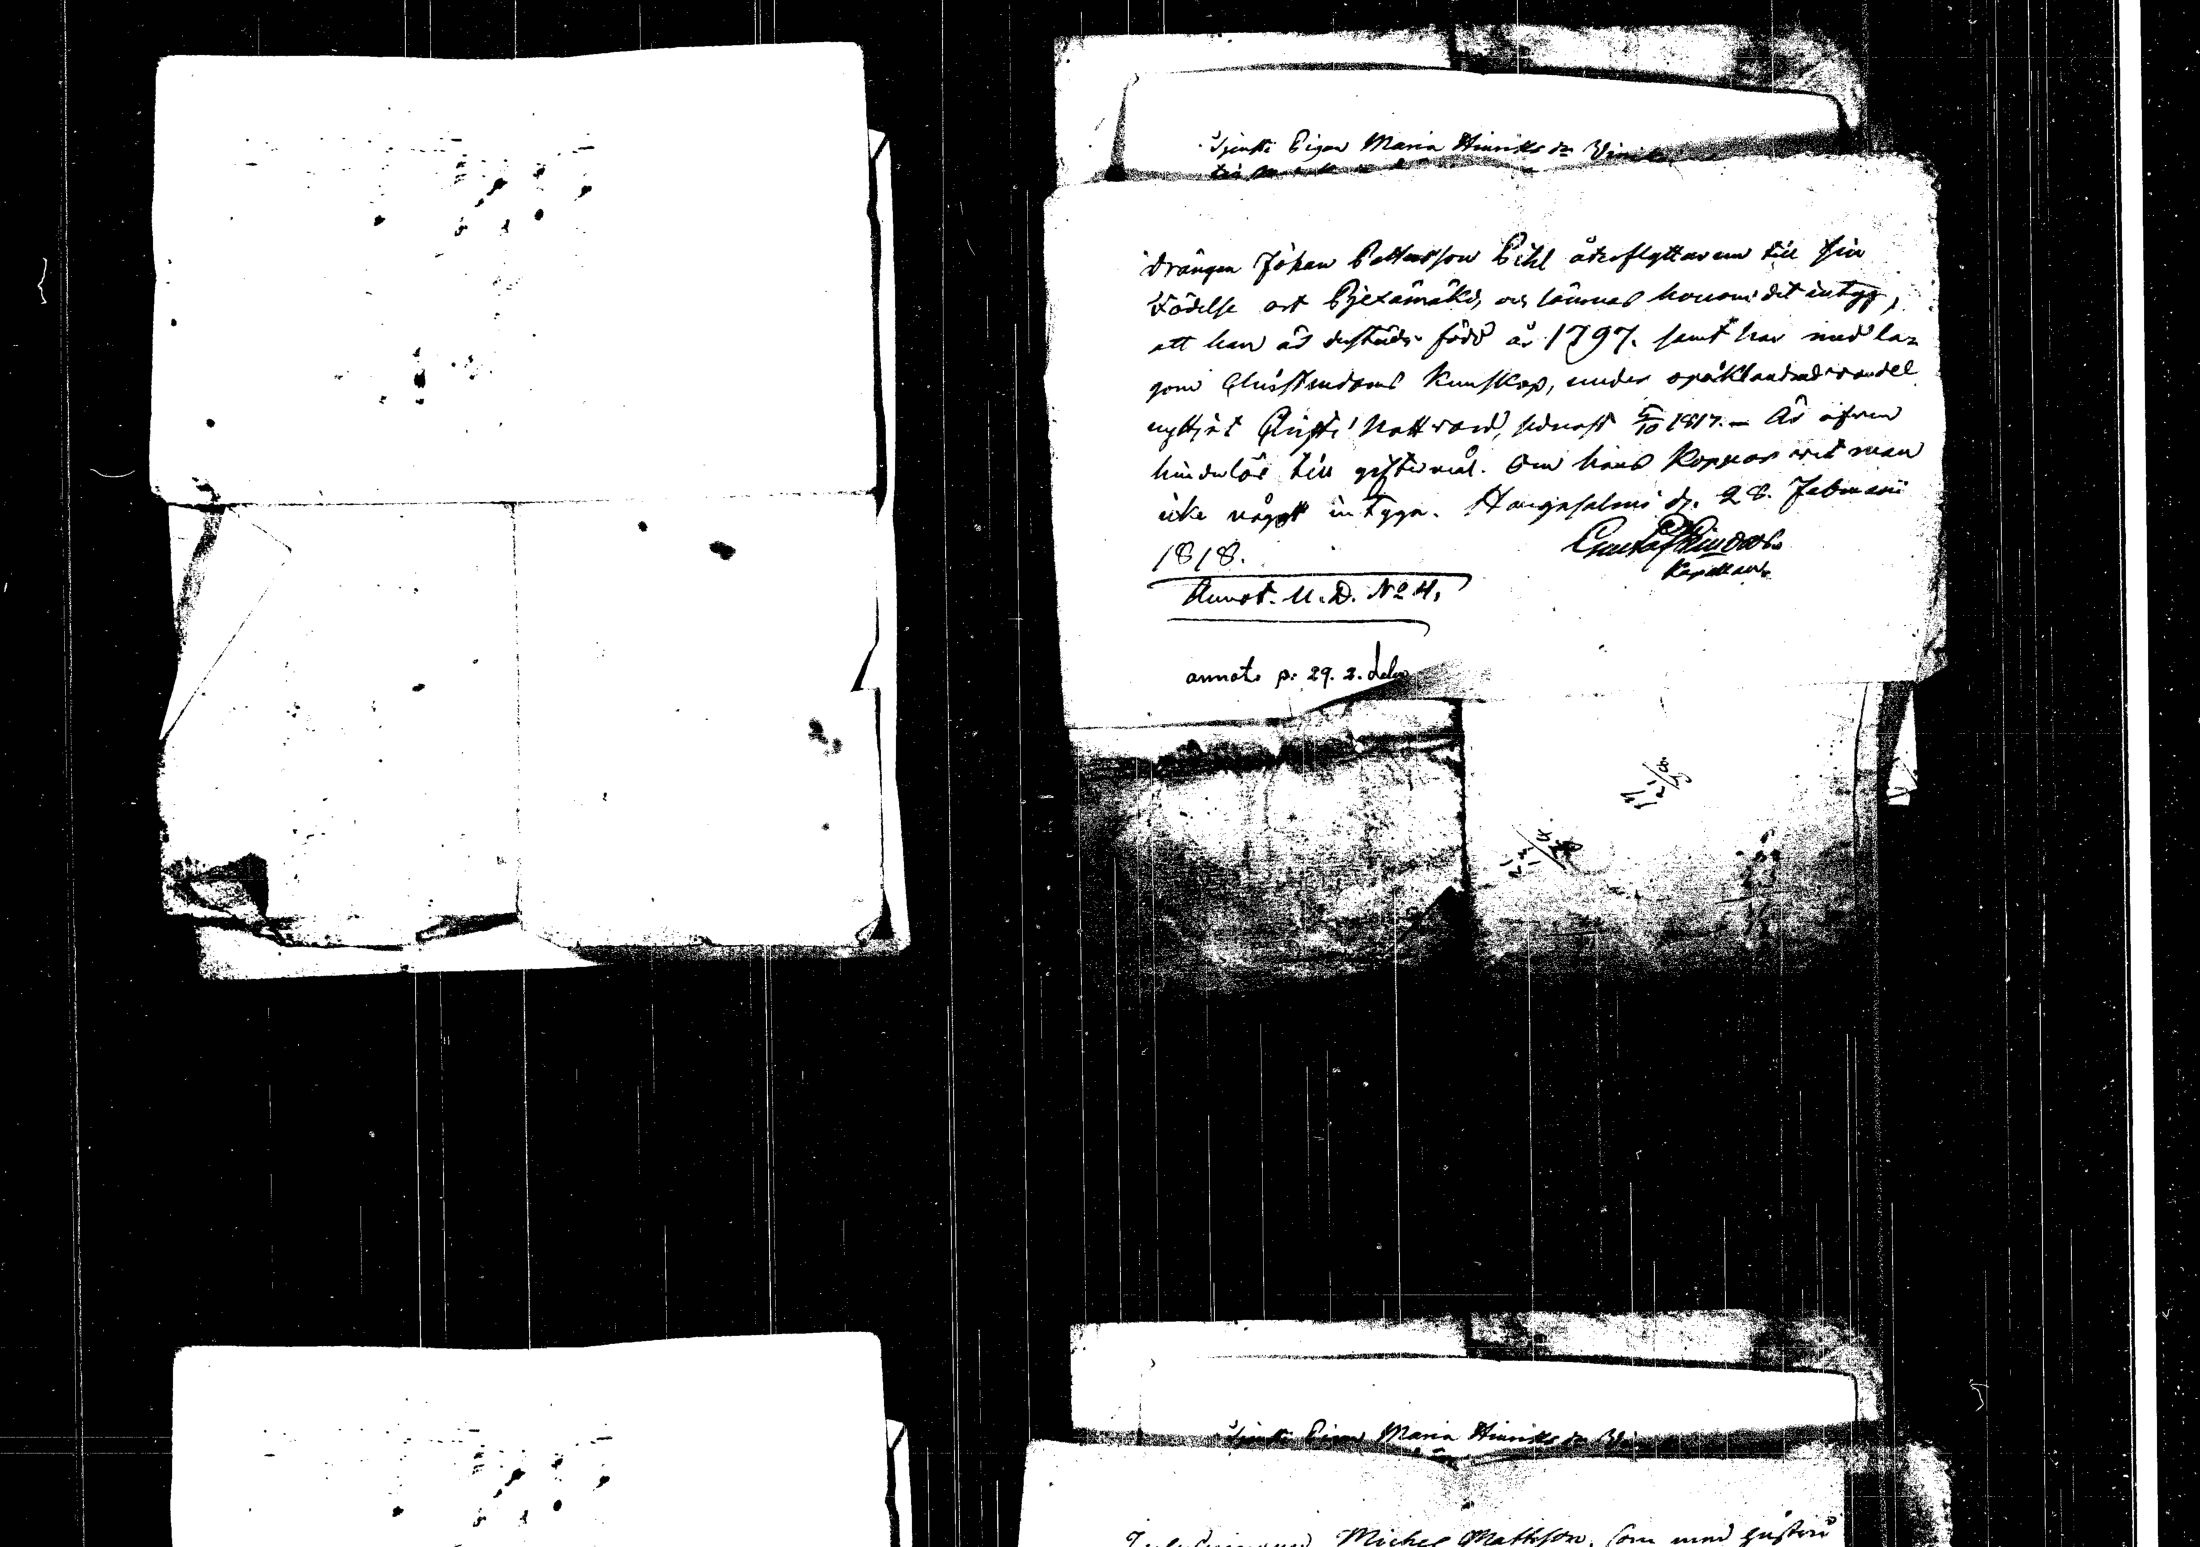 Tjenste Pigan Maria Hinriks dr
Drängen Johan Pettersson Pihl återflyttar nu till sin
Födelse ort Pjexämäki, och lämnas honom det intyg,
att han är derstädes född år 1797. samt har med la-
gom Christendoms Kunskap, under oprcklandad wandel
nyttjat Christi Nattvard, sednast 5/10 1817. - Är äfven
hinderlös till giftermål. Om hans Koppor vet man
icke någott intyga. Hangasalmi d. 28. Februarii
1818.
Gustaf
Kapellan
Annot. U. D. No 4,
annot. p. 29. 2. delen
Tjenste Pigan Maria Hinriks dr
Michel Mattsson, som med hustru